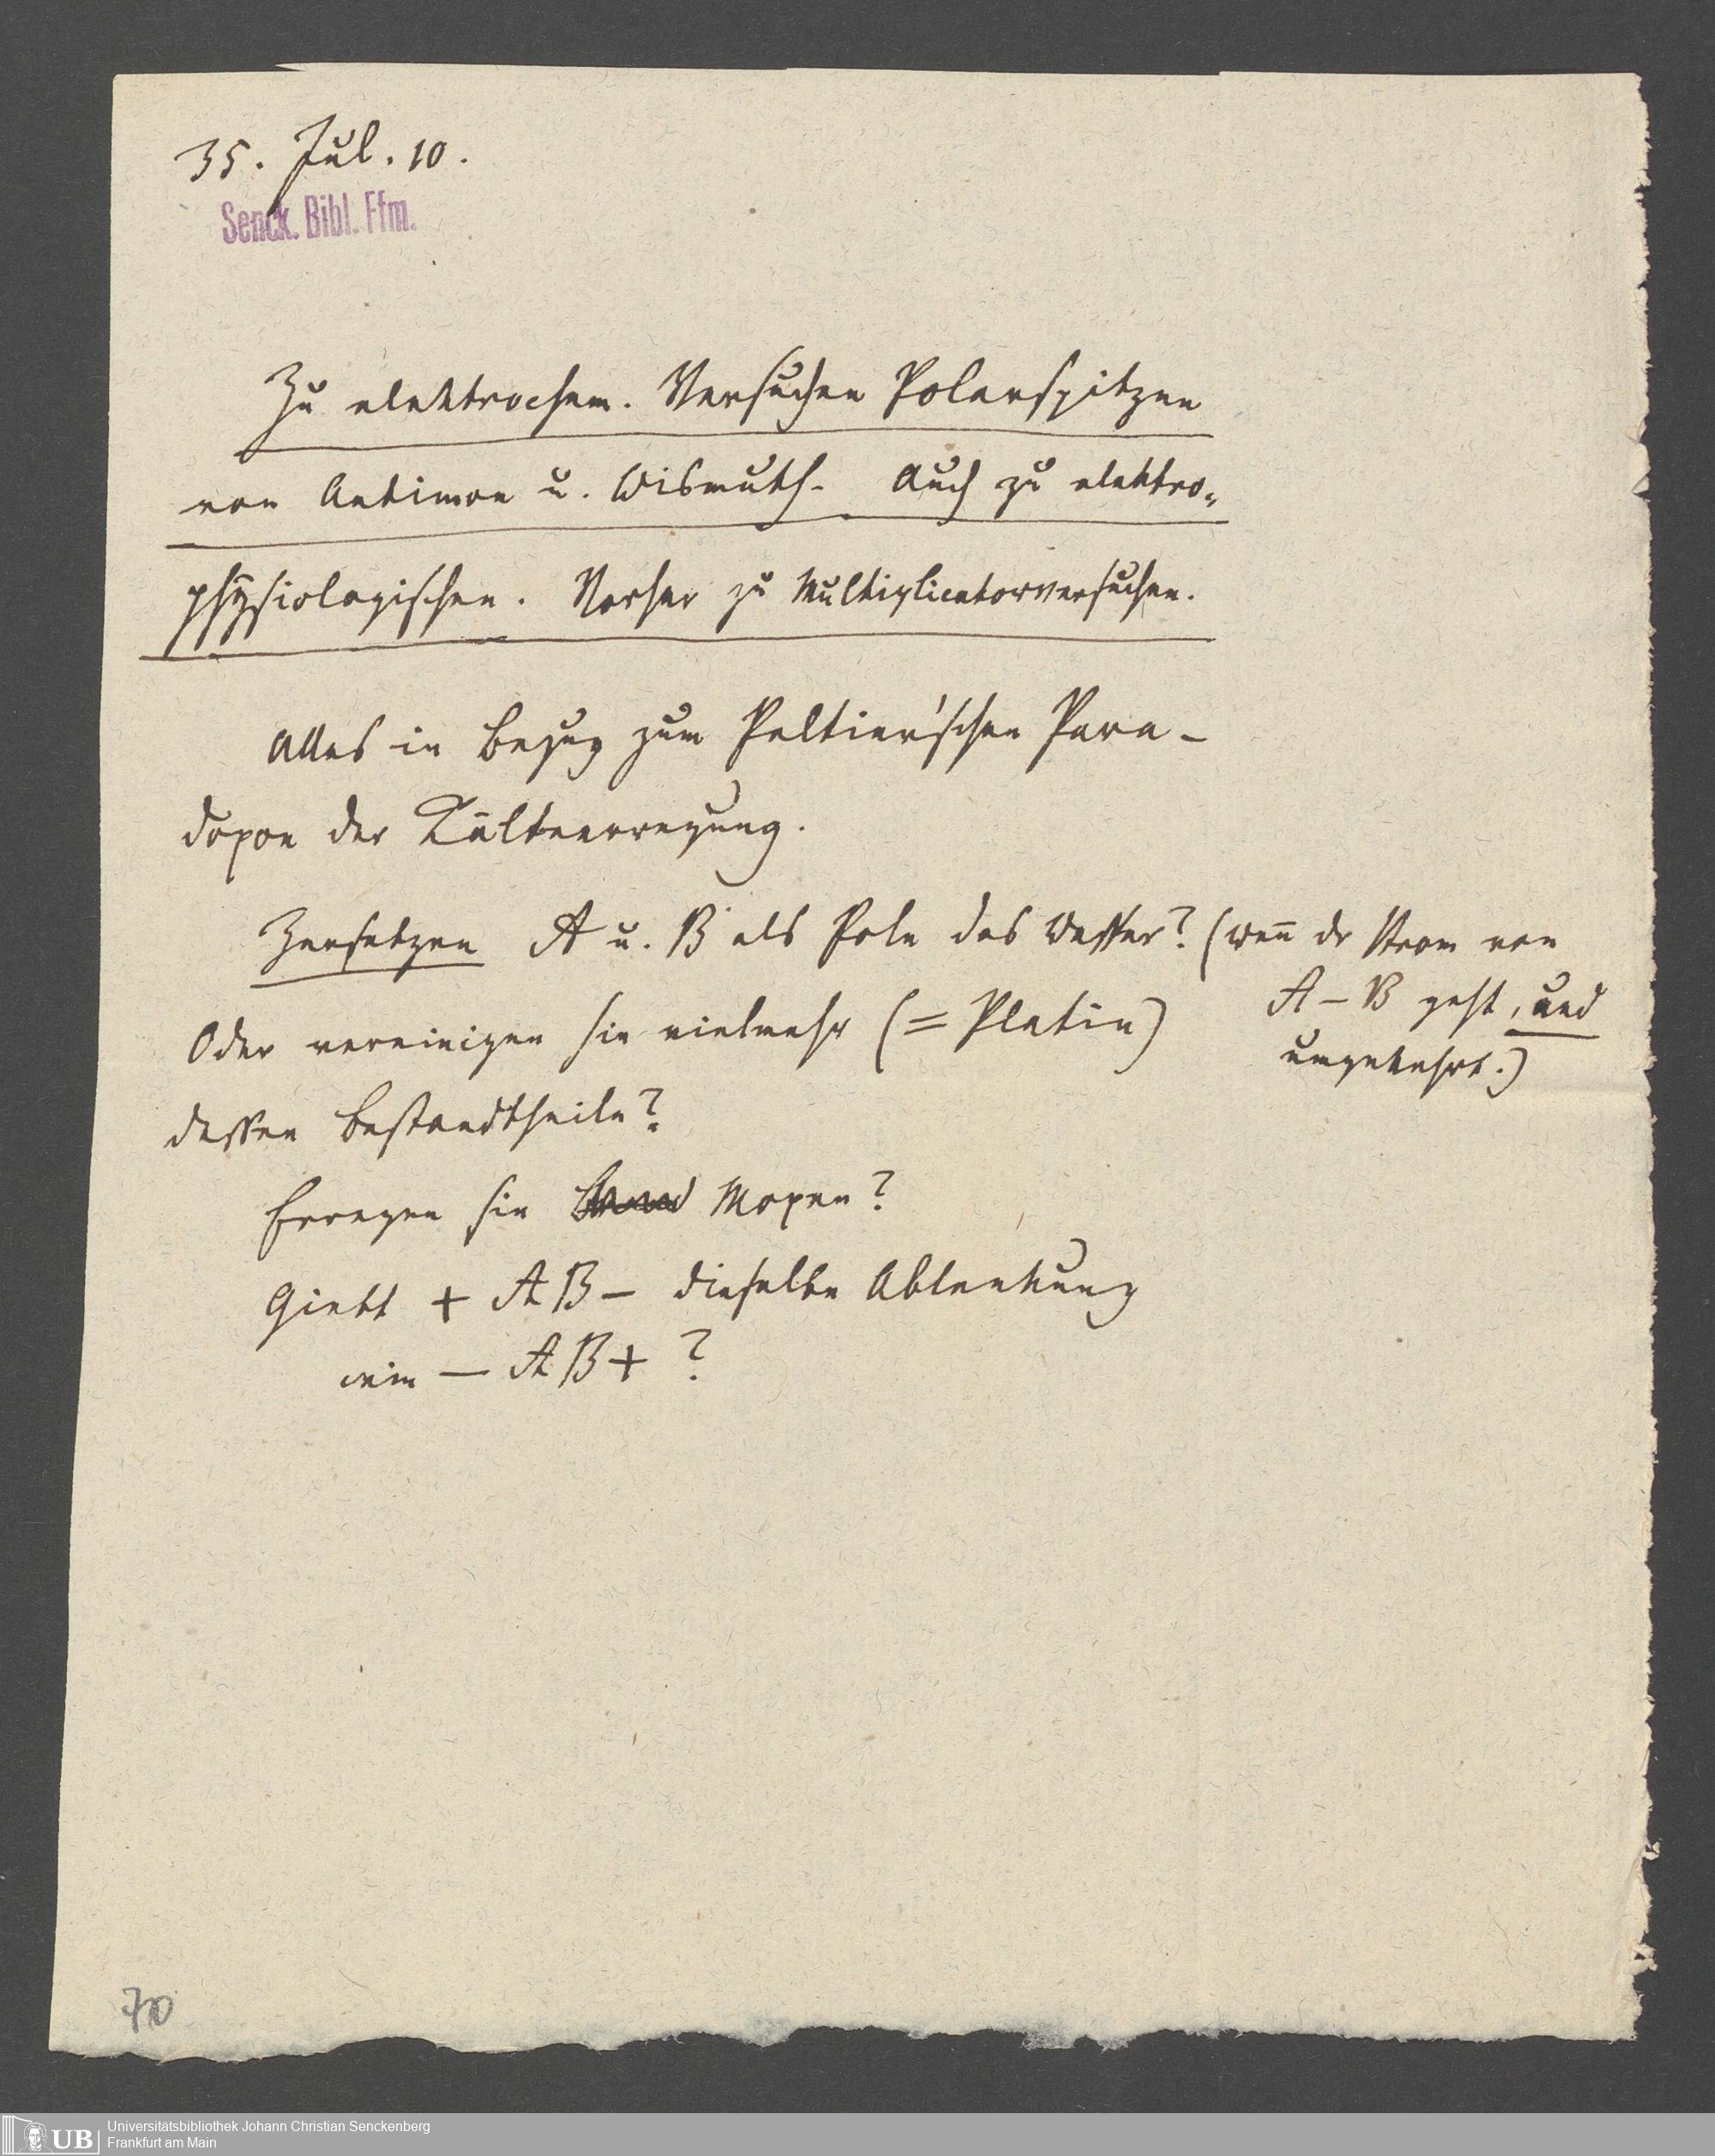 35. Jul. 10.
Senck. Bibl. Ffm.
Zu elektrochem. Versuchen Polarspitzen
von Antimon u. Wismuth. Auch zu elektro-
physiologischen. Vorher zu Multiplicatorversuchen.
Alles in Bezug zum Peltier'schen Para-
doxon der Kälteerregung.
Zersetzen A u. B als Pole das Wasser? (wen̅ dr Strom von
A – B geht, und
umgekehrt.)
Oder vereinigen sie vielmehr (= Platin)
dessen Bestandtheile?
Erregen sie Moxen?
Giebt + AB – dieselbe Ablenkung
wie – AB + ?
70
UB
Universitätsbibliothek Johann Christian Senckenberg
Frankfurt am Main